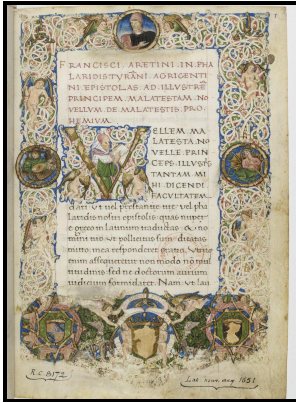 FRANCISCI ARETINI IN PHA
LARIDIS TYRĀNI AGRIGENTI
NI EPISTOLAS AD ILLUSTRĒ
PRINCIPEM MALATESTAM NO
VELLUM DE MALATESTIS PRO
HEMIUM
VELLEM MA
LATESTA NO
VELLE PRIN
CEPS ILLUS
TANTAM MI
HI DICENDI
FACULTATEM
dari ut vel prestantie tue vel pha
laridis nostri epistolis quas nuper
e greco in latinum traductas
mini tuo ut polliciti sum
mino mea responderet oratio
enim assequeretur non modo
titudinis sed ne doctorum
iudicium formidaret Nam
R.C. 8172
Lat. nouv. acq. 1651